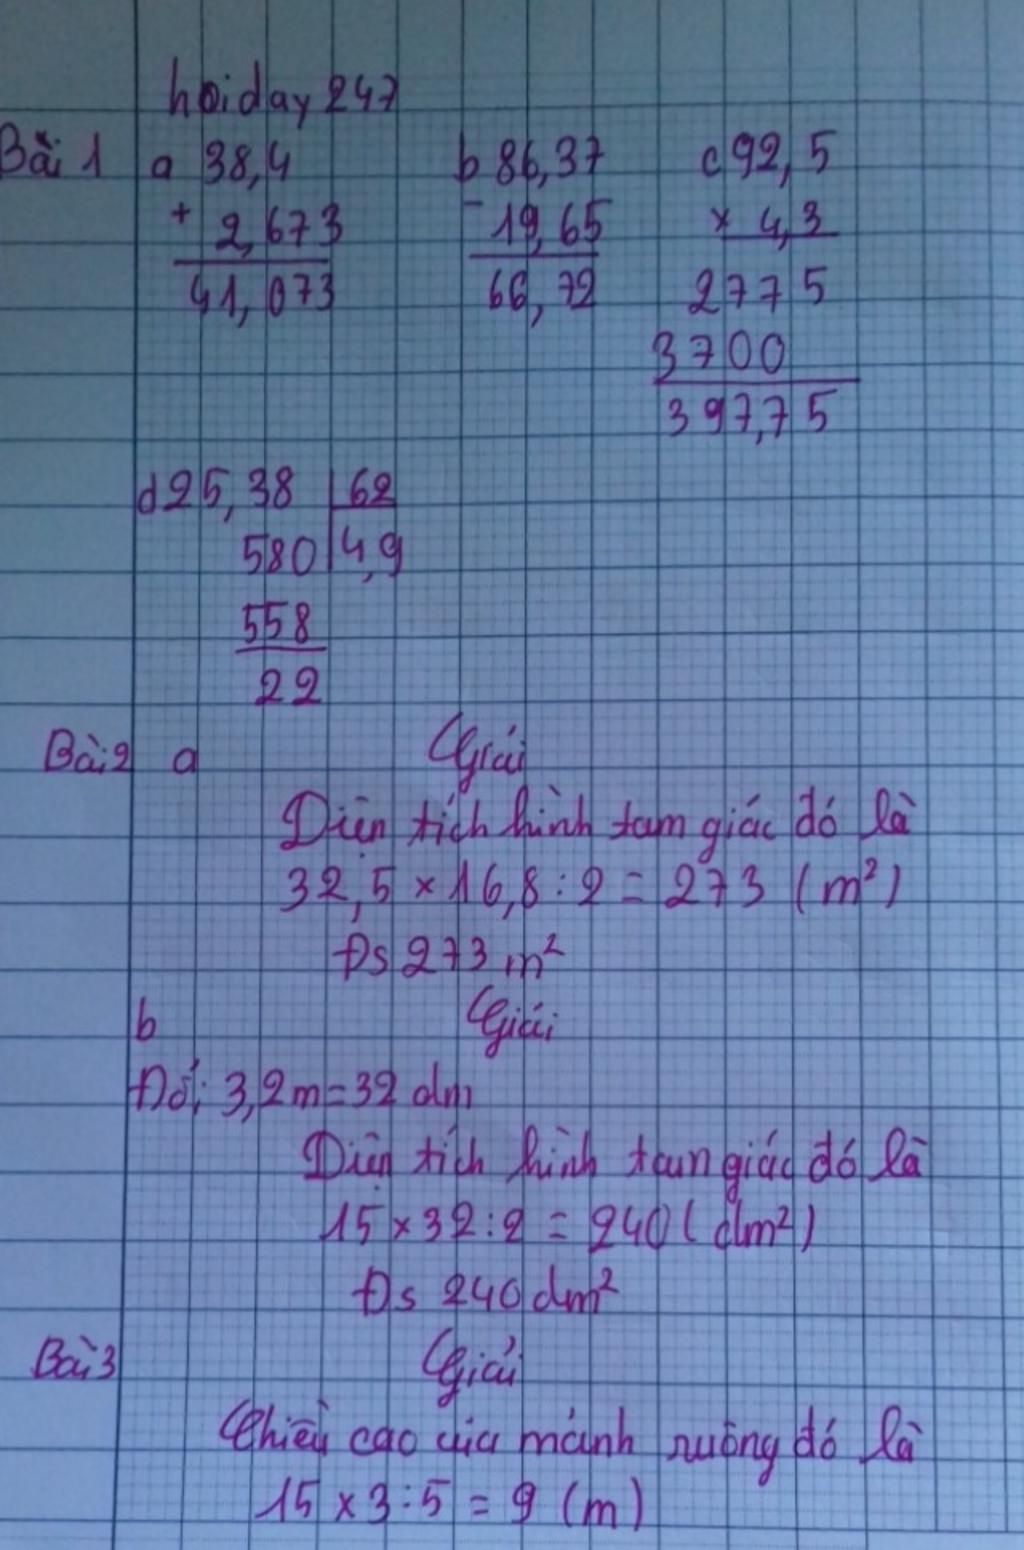 hoiday 247
Bài 1 a 38,4 b 86,37 c 92,5
+ 2,673 - 19,65 x 4,3
41,073 66,72 2775
3700
397,75
d 25,38 62
580 4,9
558
22
Bài 2 a Giải
Diện tích hình tam giác đó là
32,5 x 16,8 : 2 = 273 (m²)
Đs 273 m²
b Giải
Đổi 3,2m = 32 dm
Diện tích hình tam giác đó là
15 x 32 : 2 = 240 (dm²)
Đs 240 dm²
Bài 3 Giải
Chiều cao của mảnh ruộng đó là
15 x 3 : 5 = 9 (m)